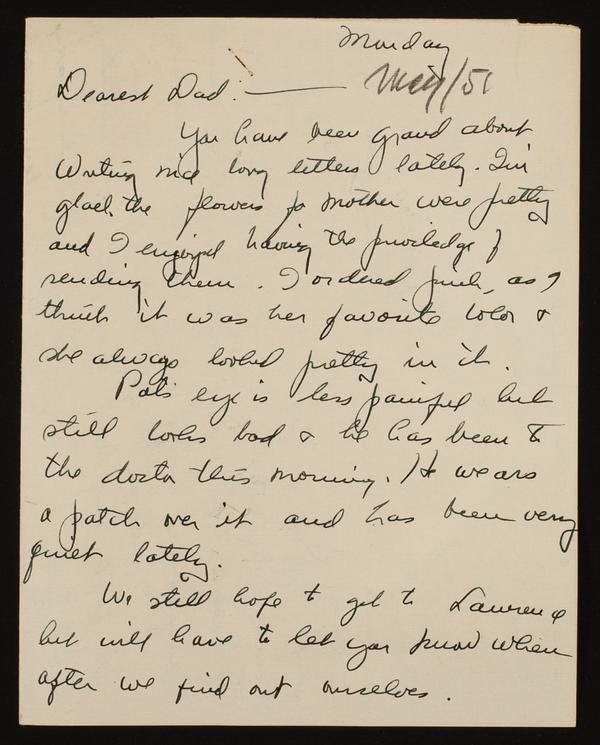 Monday
May/51
Dearest Dad: —
You have been grand about
writing nice long letters lately. I'm
glad the flowers for Mother were pretty
and I enjoyed having the priviledge of
sending them. I ordered pink, as I
think it was her favorite color &
she always looked pretty in it.
Pat's eye is less painful but
still looks bad & he has been to
the doctor this morning. He wears
a patch over it and has been very
quiet lately.
We still hope to get to Lawrence
but will have to let you know when
after we find out ourselves.